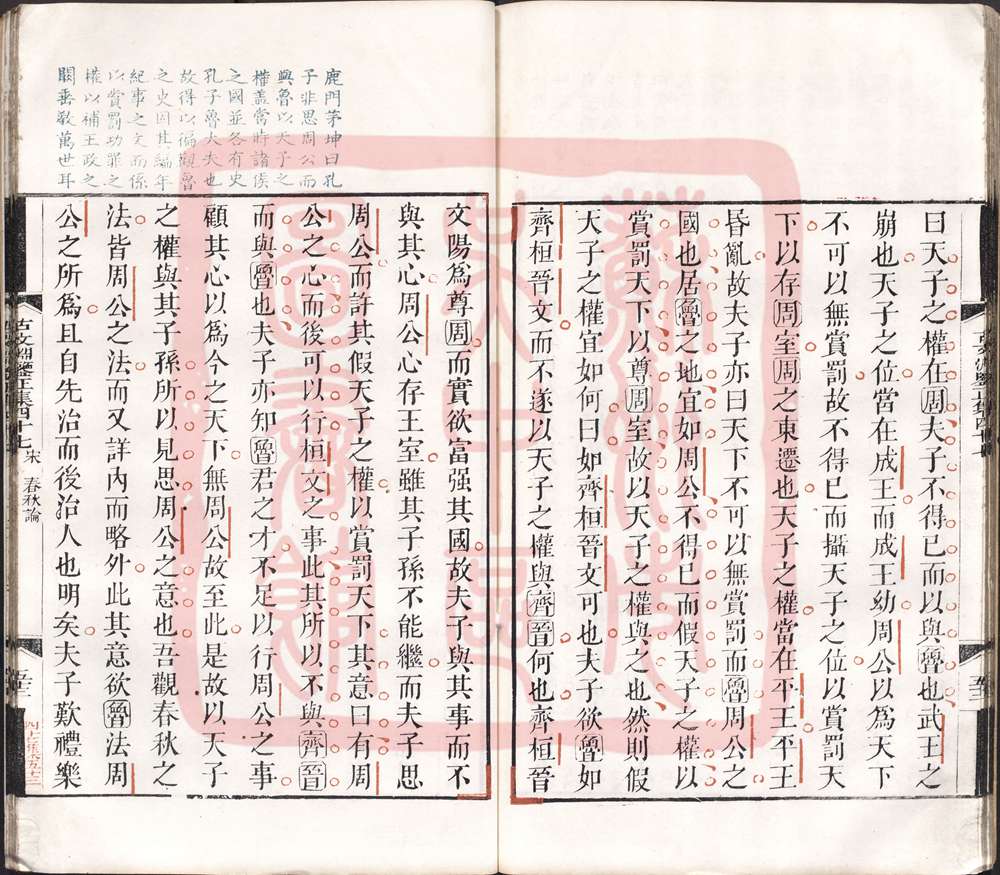 曰天子之權在周夫子不得已而以與魯也武王之
崩也天子之位當在成王而成王幼周公以爲天下
不可以無賞罰故不得已而攝天子之位以賞罰天
下以存周室周之東遷也天子之權當在平王平王
昏亂故夫子亦曰天下不可以無賞罰而魯周公之
國也居魯之地宜如周公不得已而假天子之權以
賞罰天下以尊周室故以天子之權與之也然則假
天子之權宜如何曰如齊桓晉文可也夫子欲魯如
齊桓晉文而不遂以天子之權與齊晉何也齊桓晉
鹿門茅坤曰孔
子非思周公而
興魯以天子之
權盖當時諸侯
之國並各有史
孔子魯大夫也
故得以徧觀魯
之史因其編年
紀事之文而係
以賞罰功罪之
權以補王政之
闕垂敎萬世耳
文陽爲尊周而實欲富强其國故夫子與其事而不
與其心周公心存王室雖其子孫不能繼而夫子思
周公而許其假天子之權以賞罰天下其意曰有周
公之心而後可以行桓文之事此其所以不與齊晉
而與魯也夫子亦知魯君之才不足以行周公之事
顧其心以爲今之天下無周公故至此是故以天子
之權與其子孫所以見思周公之意也吾觀春秋之
法皆周公之法而又詳內而略外此其意欲魯法周
公之所爲且自先治而後治人也明矣夫子歎禮樂
正集四十七 宋 春秋論